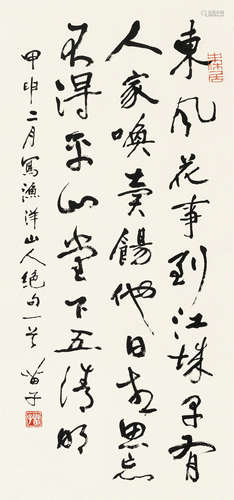 東風花事到江城早有
人家喚賣餳他日相思忘
不得平山堂下五清明
甲申二月寫漁洋山人絕句一首 苗子